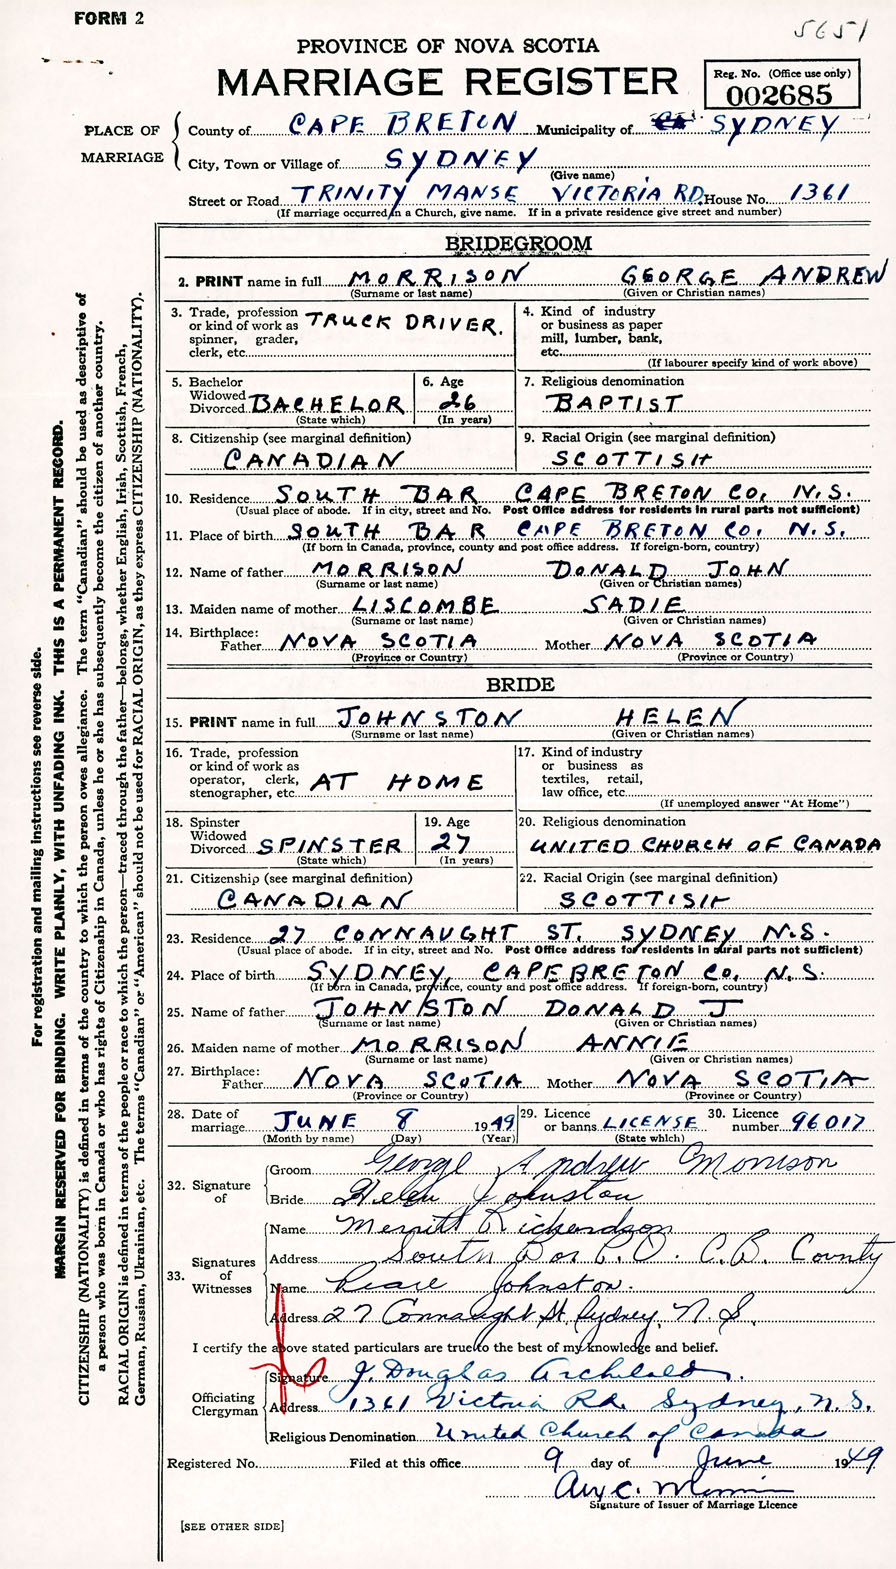 FORM 2
5651
PROVINCE OF NOVA SCOTIA
MARRIAGE REGISTER
Reg. No. (Office use only)
002685
PLACE OF MARRIAGE
County of CAPE BRETON Municipality of SYDNEY
City, Town or Village of SYDNEY
(Give name)
Street or Road TRINITY MANSE VICTORIA RD. House No. 1361
(If marriage occurred in a Church, give name. If in a private residence give street and number)
BRIDEGROOM
2. PRINT name in full MORRISON GEORGE ANDREW
(Surname or last name) (Given or Christian names)
3. Trade, profession or kind of work as spinner, grader, clerk, etc. TRUCK DRIVER.
4. Kind of industry or business as paper mill, lumber, bank, etc.
(If labourer specify kind of work above)
5. Bachelor Widowed Divorced BACHELOR
(State which)
6. Age 26
(In years)
7. Religious denomination
BAPTIST
8. Citizenship (see marginal definition)
CANADIAN
9. Racial Origin (see marginal definition)
SCOTTISH
10. Residence SOUTH BAR CAPE BRETON CO, N.S.
(Usual place of abode. If in city, street and No. Post Office address for residents in rural parts not sufficient)
11. Place of birth SOUTH BAR CAPE BRETON CO, N.S.
(If born in Canada, province, county and post office address. If foreign-born, country)
12. Name of father MORRISON DONALD JOHN
(Surname or last name) (Given or Christian names)
13. Maiden name of mother LISCOMBE SADIE
(Surname or last name) (Given or Christian names)
14. Birthplace:
Father NOVA SCOTIA Mother NOVA SCOTIA
(Province or Country) (Province or Country)
BRIDE
15. PRINT name in full JOHNSTON HELEN
(Surname or last name) (Given or Christian names)
16. Trade, profession or kind of work as operator, clerk, stenographer, etc. AT HOME
17. Kind of industry or business as textiles, retail, law office, etc.
(If unemployed answer "At Home")
18. Spinster Widowed Divorced SPINSTER
(State which)
19. Age 27
(In years)
20. Religious denomination
UNITED CHURCH OF CANADA
21. Citizenship (see marginal definition)
CANADIAN
22. Racial Origin (see marginal definition)
SCOTTISH
23. Residence 27 CONNAUGHT ST. SYDNEY N.S.
(Usual place of abode. If in city, street and No. Post Office address for residents in rural parts not sufficient)
24. Place of birth SYDNEY, CAPE BRETON CO, N.S.
(If born in Canada, province, county and post office address. If foreign-born, country)
25. Name of father JOHNSTON DONALD J
(Surname or last name) (Given or Christian names)
26. Maiden name of mother MORRISON ANNIE
(Surname or last name) (Given or Christian names)
27. Birthplace:
Father NOVA SCOTIA Mother NOVA SCOTIA
(Province or Country) (Province or Country)
28. Date of marriage JUNE 8 1949
(Month by name) (Day) (Year)
29. Licence or banns LICENSE
(State which)
30. Licence number 96017
32. Signature of
Groom George Andrew Morrison
Bride Helen Johnston
33. Signatures of Witnesses
Name Merritt Richardson
Address South Bar P.O. C.B. County
Name Johnston.
Address 27 Connaught St. Sydney, N.S.
I certify the above stated particulars are true to the best of my knowledge and belief.
Officiating Clergyman
Signature J. Douglas Archibald.
Address 1361 Victoria Rd. Sydney, N.S.
Religious Denomination United Church of Canada
Registered No. Filed at this office 9 day of June 1949
Signature of Issuer of Marriage Licence
[SEE OTHER SIDE]
For registration and mailing instructions see reverse side.
MARGIN RESERVED FOR BINDING. WRITE PLAINLY, WITH UNFADING INK. THIS IS A PERMANENT RECORD.
CITIZENSHIP (NATIONALITY) is defined in terms of the country to which the person owes allegiance. The term "Canadian" should be used as descriptive of
a person who was born in Canada or who has rights of Citizenship in Canada, unless he or she has subsequently become the citizen of another country.
RACIAL ORIGIN is defined in terms of the people or race to which the person—traced through the father—belongs, whether English, Irish, Scottish, French,
German, Russian, Ukrainian, etc. The terms "Canadian" or "American" should not be used for RACIAL ORIGIN, as they express CITIZENSHIP (NATIONALITY).